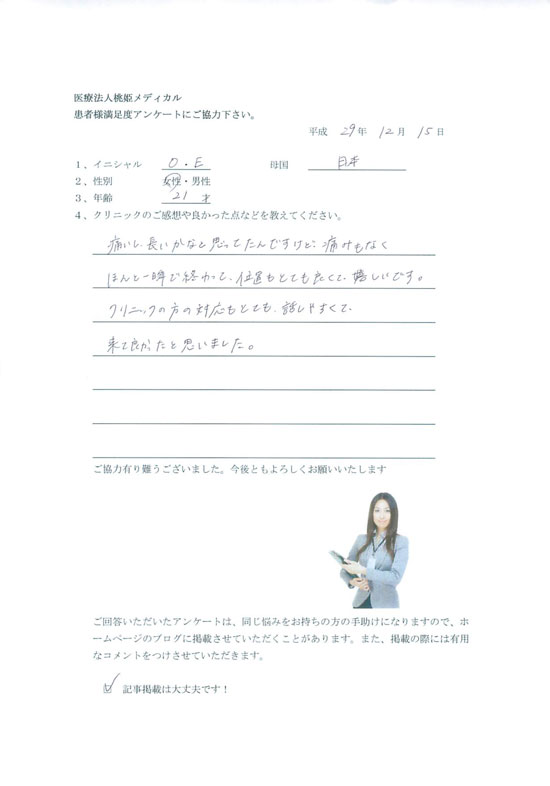 医療法人桃姫メディカル
患者様満足度アンケートにご協力下さい。
平成 29年 12月 15日
1、イニシャル O・E 母国 日本
2、性別 女性・男性
3、年齢 21 才
4、クリニックのご感想や良かった点などを教えてください。
痛いし、長いかなと思ってたんですけど、痛みもなく
ほんと一瞬で終わって、位置もとても良くて、嬉しいです。
クリニックの方の対応もとても、話しやすくて
来て良かったと思いました。
ご協力有り難うございました。今後ともよろしくお願いいたします
ご回答いただいたアンケートは、同じ悩みをお持ちの方の手助けになりますので、ホ
ームページのブログに掲載させていただくことがあります。また、掲載の際には有用
なコメントをつけさせていただきます。
記事掲載は大丈夫です！